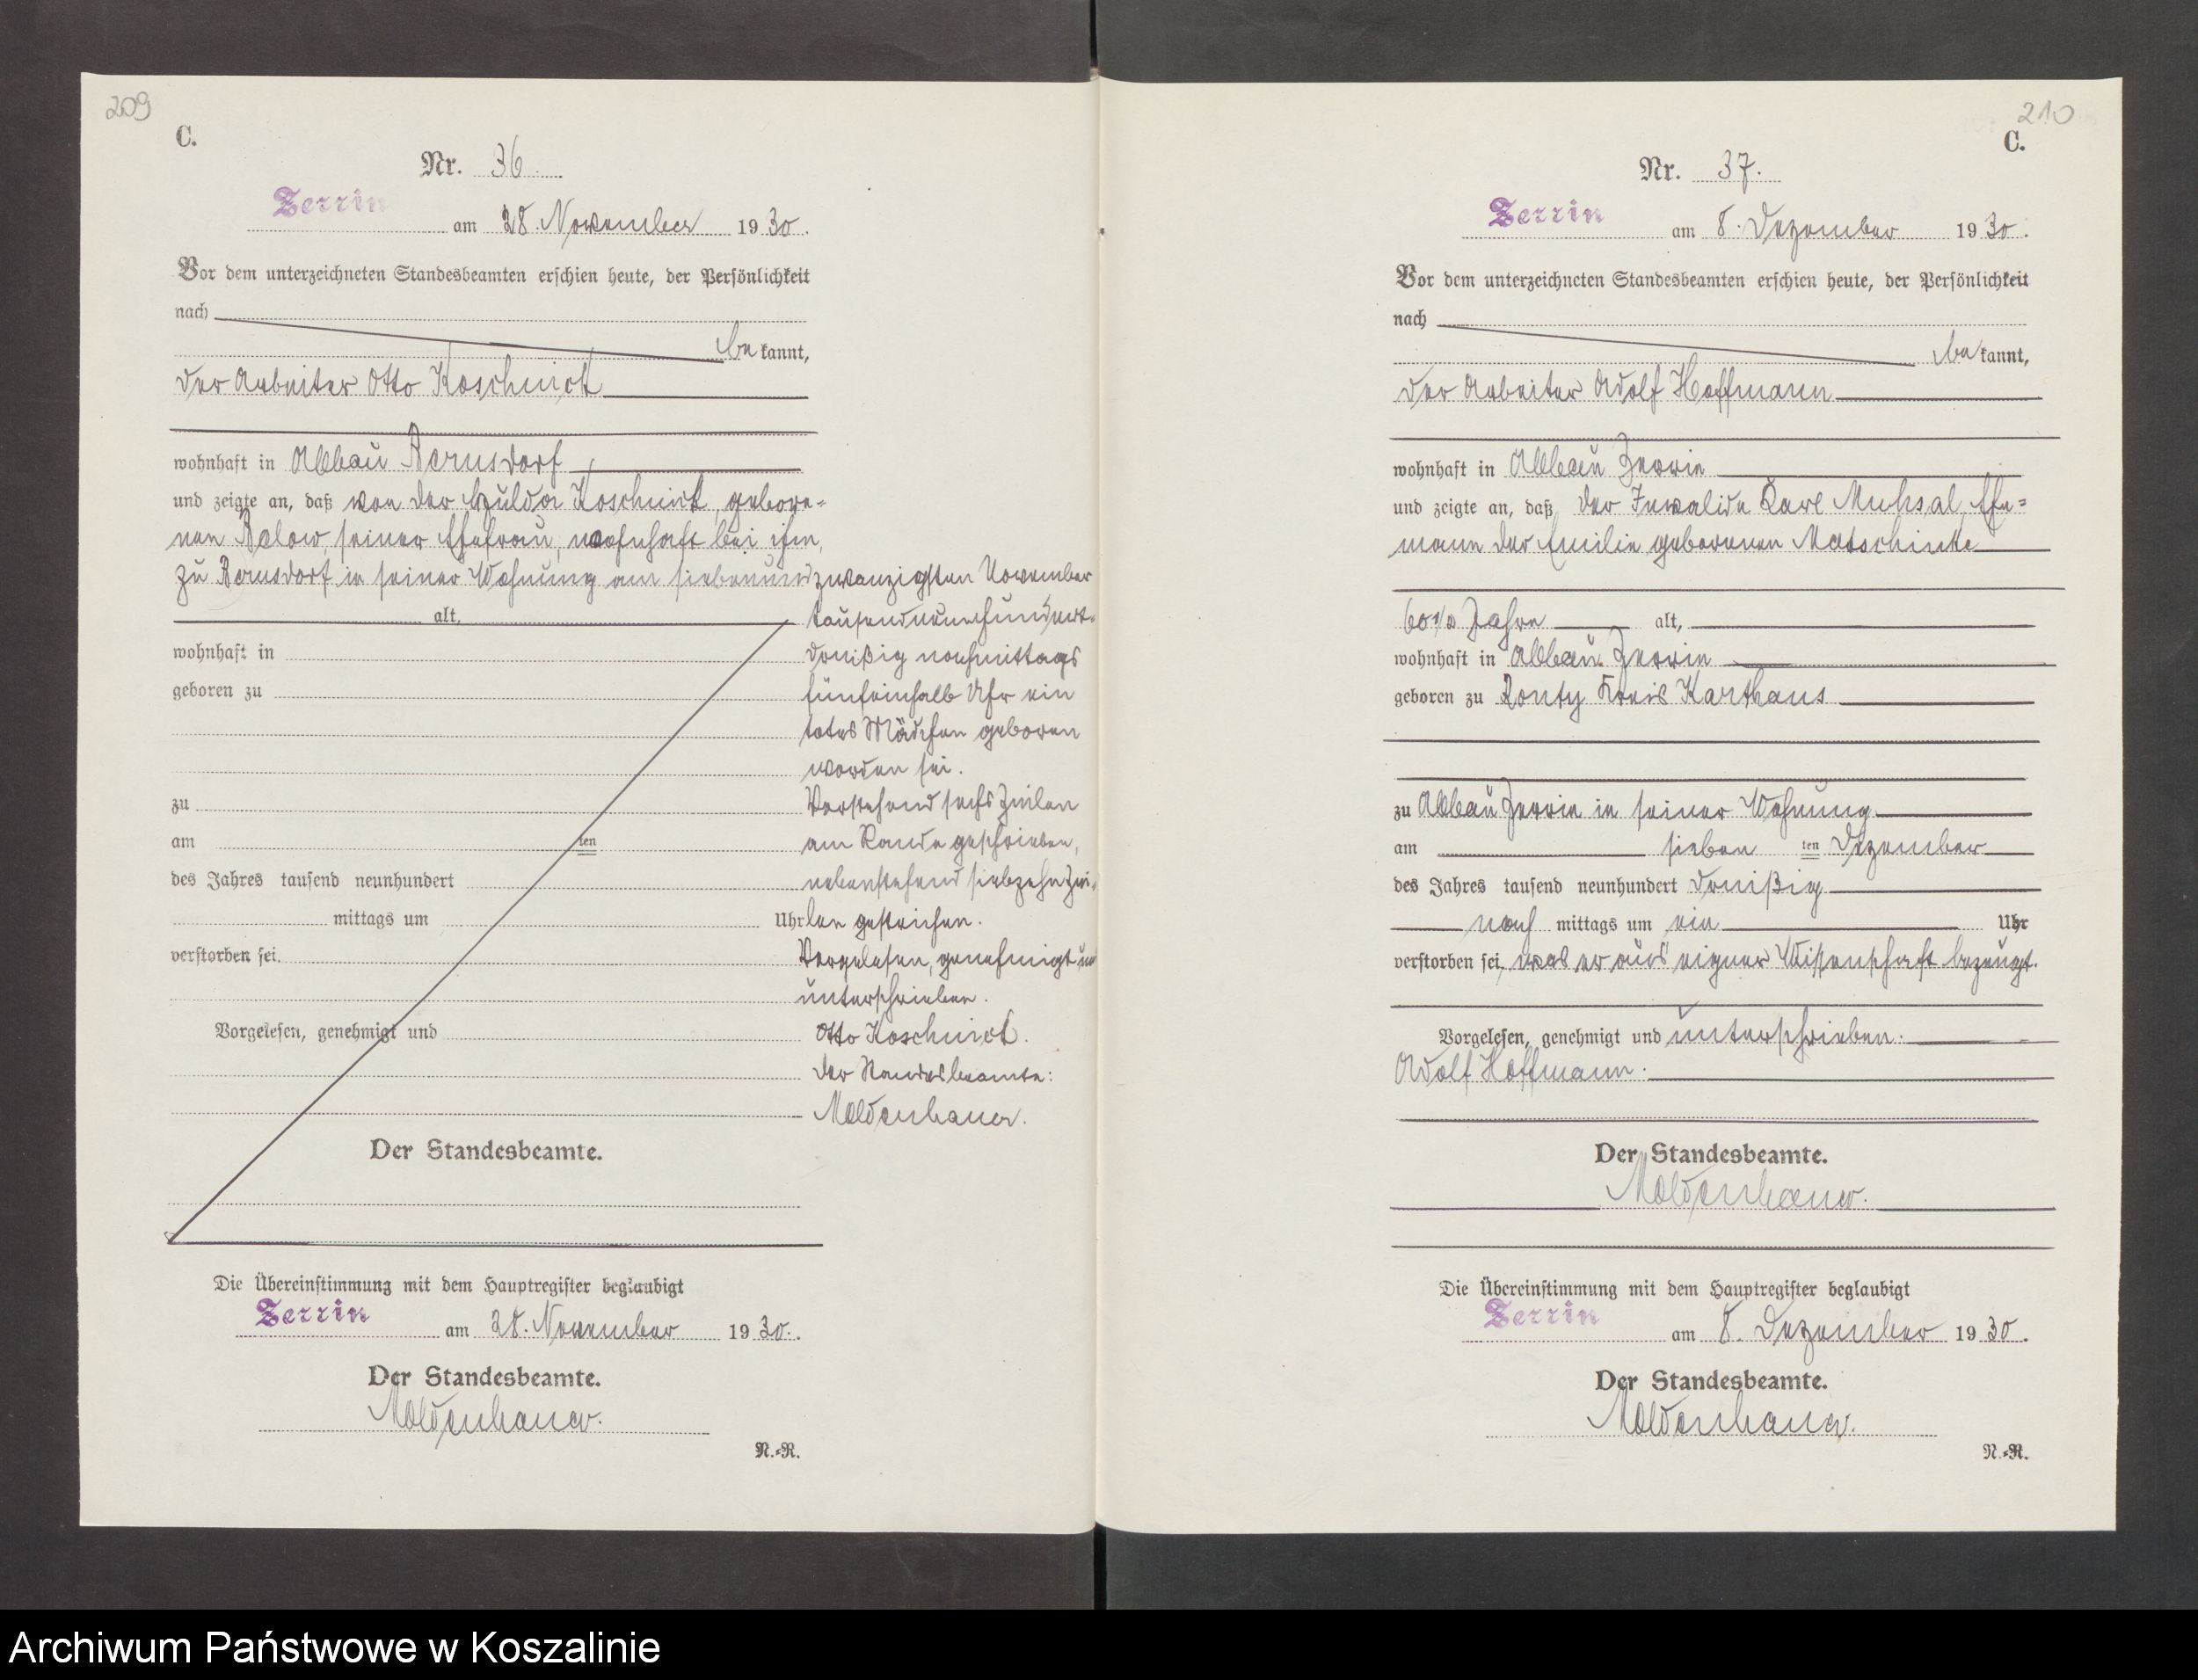 209
C.
Nr. 36.
Zerrin am 28. November 1930.
Vor dem unterzeichneten Standesbeamten erschien heute, der Persönlichkeit
nach
bekannt,
der Arbeiter Otto Koschnick
wohnhaft in Abbau Bernsdorf
und zeigte an, daß von der Hulda Koschnick, gebore-
nen Below, seiner Ehefrau, wohnhaft bei ihm,
zu Bernsdorf in seiner Wohnung am siebenundzwanzigsten November
alt, tausendneunhundert-
wohnhaft in dreißig nachmittags
geboren zu fünfeinhalb Uhr ein
totes Mädchen geboren
worden sei.
zu Vorstehend sechs Zeilen
am ten am Rande geschrieben,
des Jahres tausend neunhundert nebenstehend siebzehn Zei-
mittags um Uhr len gestrichen.
verstorben sei. Vorgelesen, genehmigt und
unterschrieben.
Vorgelesen, genehmigt und Otto Koschnick.
Der Standesbeamte:
Moldenhauer.
Der Standesbeamte.
Die Übereinstimmung mit dem Hauptregister beglaubigt
Zerrin am 28. November 1930.
Der Standesbeamte.
Moldenhauer.
N.-R.
210
C.
Nr. 37.
Zerrin am 8. Dezember 1930.
Vor dem unterzeichneten Standesbeamten erschien heute, der Persönlichkeit
nach
bekannt,
der Arbeiter Adolf Hoffmann
wohnhaft in Abbau Zerrin
und zeigte an, daß der Invalide Karl Muhsal, Ehe-
mann der Emilie geborenen Matschinke
Jahre alt,
wohnhaft in Abbau Zerrin
geboren zu Kreis Karthaus
zu Abbau Zerrin in seiner Wohnung
am sieben ten Dezember
des Jahres tausend neunhundert dreißig
nach mittags um ein Uhr
verstorben sei, was er aus eigner Wissenschaft bezeugt.
Vorgelesen, genehmigt und unterschrieben.
Adolf Hoffmann.
Der Standesbeamte.
Moldenhauer.
Die Übereinstimmung mit dem Hauptregister beglaubigt
Zerrin am 8. Dezember 1930.
Der Standesbeamte.
Moldenhauer.
N.-R.
Archiwum Państwowe w Koszalinie